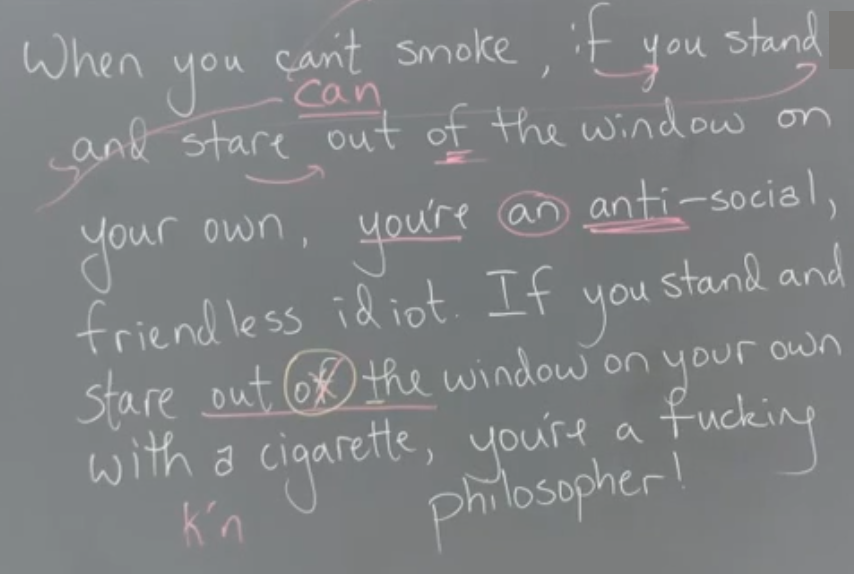 When you can't smoke, if you stand
can
and stare out of the window on
your own, you're an anti-social,
friendless idiot. If you stand and
stare out of the window on your own
with a cigarette, you're a fucking
philosopher!
k'n